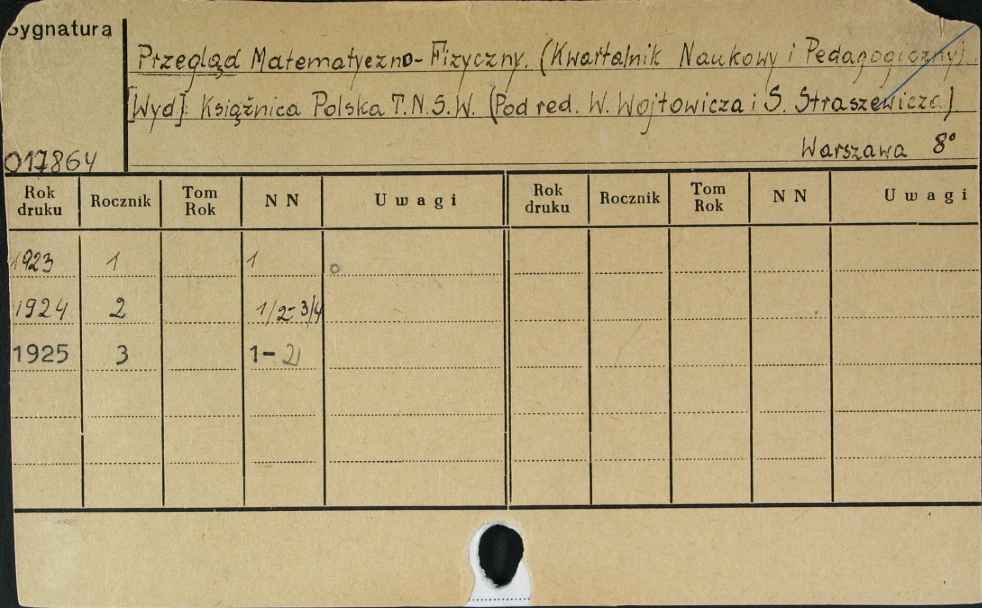 Sygnatura
Przegląd Matematyczno-Fizyczny. (Kwartalnik Naukowy i Pedagogiczny).
[Wyd]: Książnica Polska T.N.S.W. (Pod red. W. Wojtowicza i S. Straszewicza)
Warszawa 8°
017864
Rok druku Rocznik Tom Rok NN Uwagi Rok druku Rocznik Tom Rok NN Uwagi
1923 1 1
1924 2 1/2-3/4
1925 3 1-2